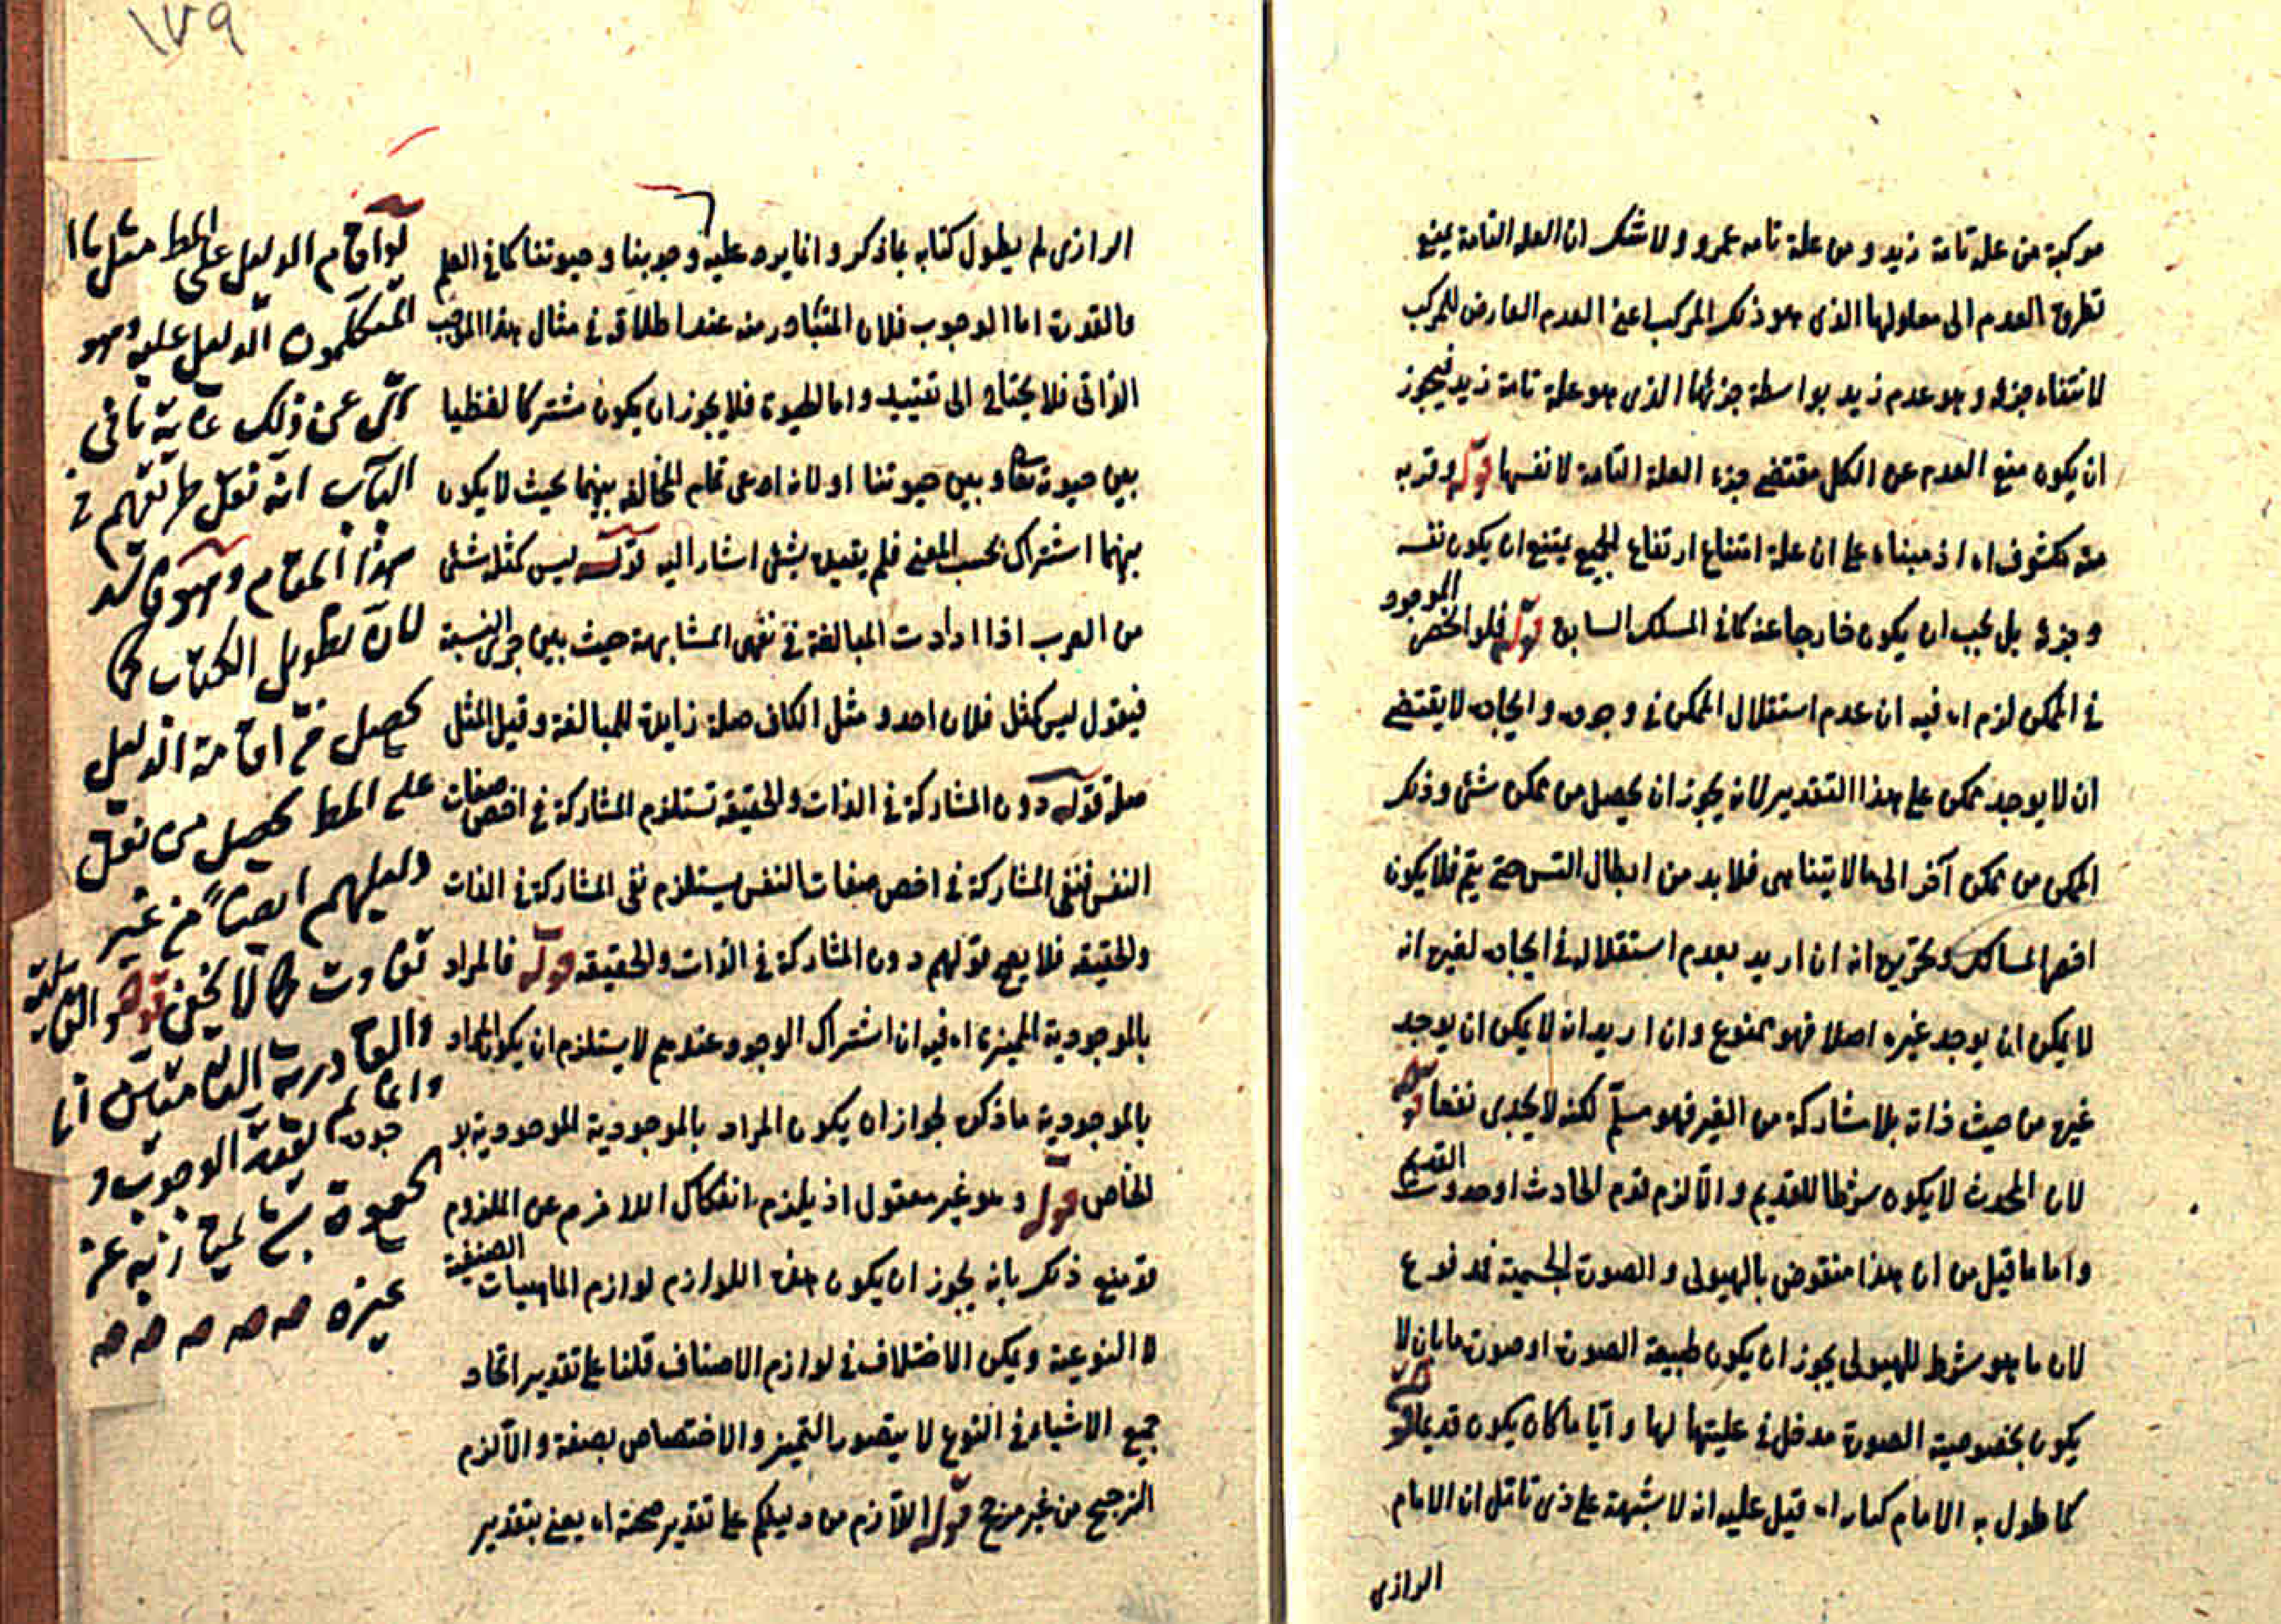 مركبة من علة تامة زيد و من علة تامه عمرو ولا شك ان العله التامة يمنع
تطرق العدم الى معلولها الذى هو ذلك المركب اعنى العدم العارض للمركب
لانتفاء جزئه و هو عدم زيد بواسطة جزئها الذى هو علة تامة زيد فيجوز
ان يكون منع العدم عن الكل مقتضى جزء العلة التامة لا نفسها قوله وقربه
منه مكشوف اه اذ مبناه على ان علة امتناع ارتفاع الجميع يمتنع ان يكون نفسه
و جزئه بل يجب ان يكون خارجا عنه كما فى المسلك السابق قوله فلو انحصر الموجود
فى الممكن لزم اه فيه ان عدم استقلال الممكن فى وجوده و ايجاده لا يقتضى
ان لا يوجد ممكن على هذا التقدير لانه يجوز ان يحصل من ممكن شئ وذلك
الممكن من ممكن آخر الى ما لا يتناهى فلا بد من ابطال التس حتى يتم فلا يكون
اقصر المسالك وتحريره انه ان اريد بعدم استقلاله فى ايجاده لغيره انه
لا يمكن ان يوجد غيره اصلا فهو ممنوع وان اريد انه لا يمكن ان يوجد
غيره من حيث ذاته بلا مشاركة من الغير فهو مسلم لكنه لا يجدى نفعا قوله
لان المحدث لا يكون شرطا للقديم و الا لزم قدم الحادث او حدوث القديم
و اما ما قيل من ان هذا منقوض بالهيولى و الصورة الجسمية فمدفوع
لان ما هو شرط للهيولى يجوز ان يكون طبيعة الصورة او صورة ما بان لا
يكون بخصوصية الصورة مدخل فى عليتها لها و ايا ما كان يكون قديما قوله
كما طول به الامام كتابه اه قيل عليه انه لا يشبهة على ذى تأمل ان الامام
الرازى
١٧٩
الرازى لم يطول كتابه بما ذكر و انما يرد عليه وجوبنا و حيوتنا كما فى العلم
والقدرة اما الوجوب فلان المتبادر منه عند اطلاقه فى مثال هذا الوجوب
الذاتى فلا يحتاج الى تقييد و اما الحيوة فلا يجوز ان يكون مشتركا لفظيا
بين حيوته تعالى و بين حيوتنا او لانه ادعى تمام المخالفة بينهما بحيث لا يكون
بينهما اشتراك بحسب المعنى فلم يقيد بشئ اشار اليه قوله ليس كمثله شئ
من العرب اذا ارادت المبالغة فى نفى المشابهة حيث بين جرى النسبة
فيقول ليس كمثل فلان احد و مثل الكاف صلة زايدة للمبالغة و قيل المثل
صلة قوله دون المشاركة فى الذات والحقيقه تستلزم المشاركة فى اخص صفات
النفس فنفى المشاركة فى اخص صفات النفس يستلزم نفى المشاركة فى الذات
والحقيقه فلا يصح قولهم دون المشاركة فى الذات والحقيقه قوله فالمراد
بالموجودية المميزة اه فيه ان اشتراك الوجود عندهم لا يستلزم ان يكون المراد
بالموجودية ما ذكره لجواز ان يكون المراد بالموجودية الموجودية بالوجود
الخاص قوله و هو غير معقول اذ يلزم انفكاك اللازم عن الملزوم
قد منع ذلك بانه يجوز ان يكون هذه اللوازم لوازم الماهيات الصنفية
لا النوعية و يمكن الاختلاف فى لوازم الاصناف قلنا على تقدير اتحاد
جميع الاشياء فى النوع لا يتصور التميز و الاختصاص بصفة و الا لزم
الترجيح من غير مرجح قوله اللازم من دليلكم على تقدير صحته اه يعنى بتقدير
لو اقام الدليل على المط مثل ما
المتكلمون الدليل عليه و هو
عن ذلك غاية ما فى
الباب انه نقل طريقهم فى
هذا المقام و هو
لانه تطويل الكتاب كما
يحصل من اقامة الدليل
على المط يحصل من نقل
دليلهم ايضا من غير
تفاوت كما لا يخفى قوله
والقادرية التامة
و انما لم يقيد الوجوب و
الحيوة بشئ
غيره